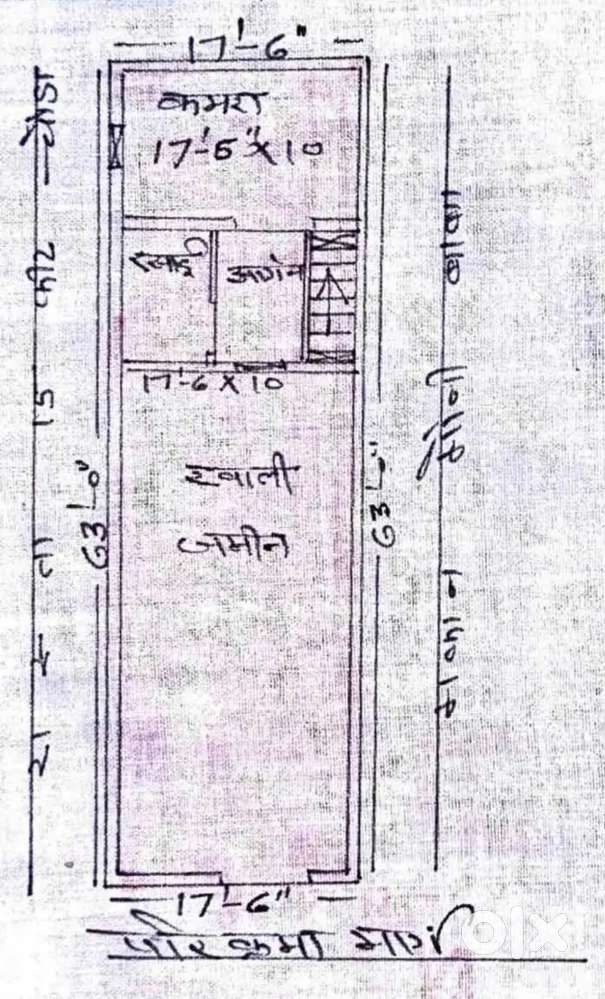 17'-6"
कमरा
17'-6" X 10
रसोई
आगंन
17'-6 X 10
खाली
जमीन
63'-0"
63'-0"
17'-6"
परिक्रमा मार्ग
रास्ता 15 फीट चौडा
olx